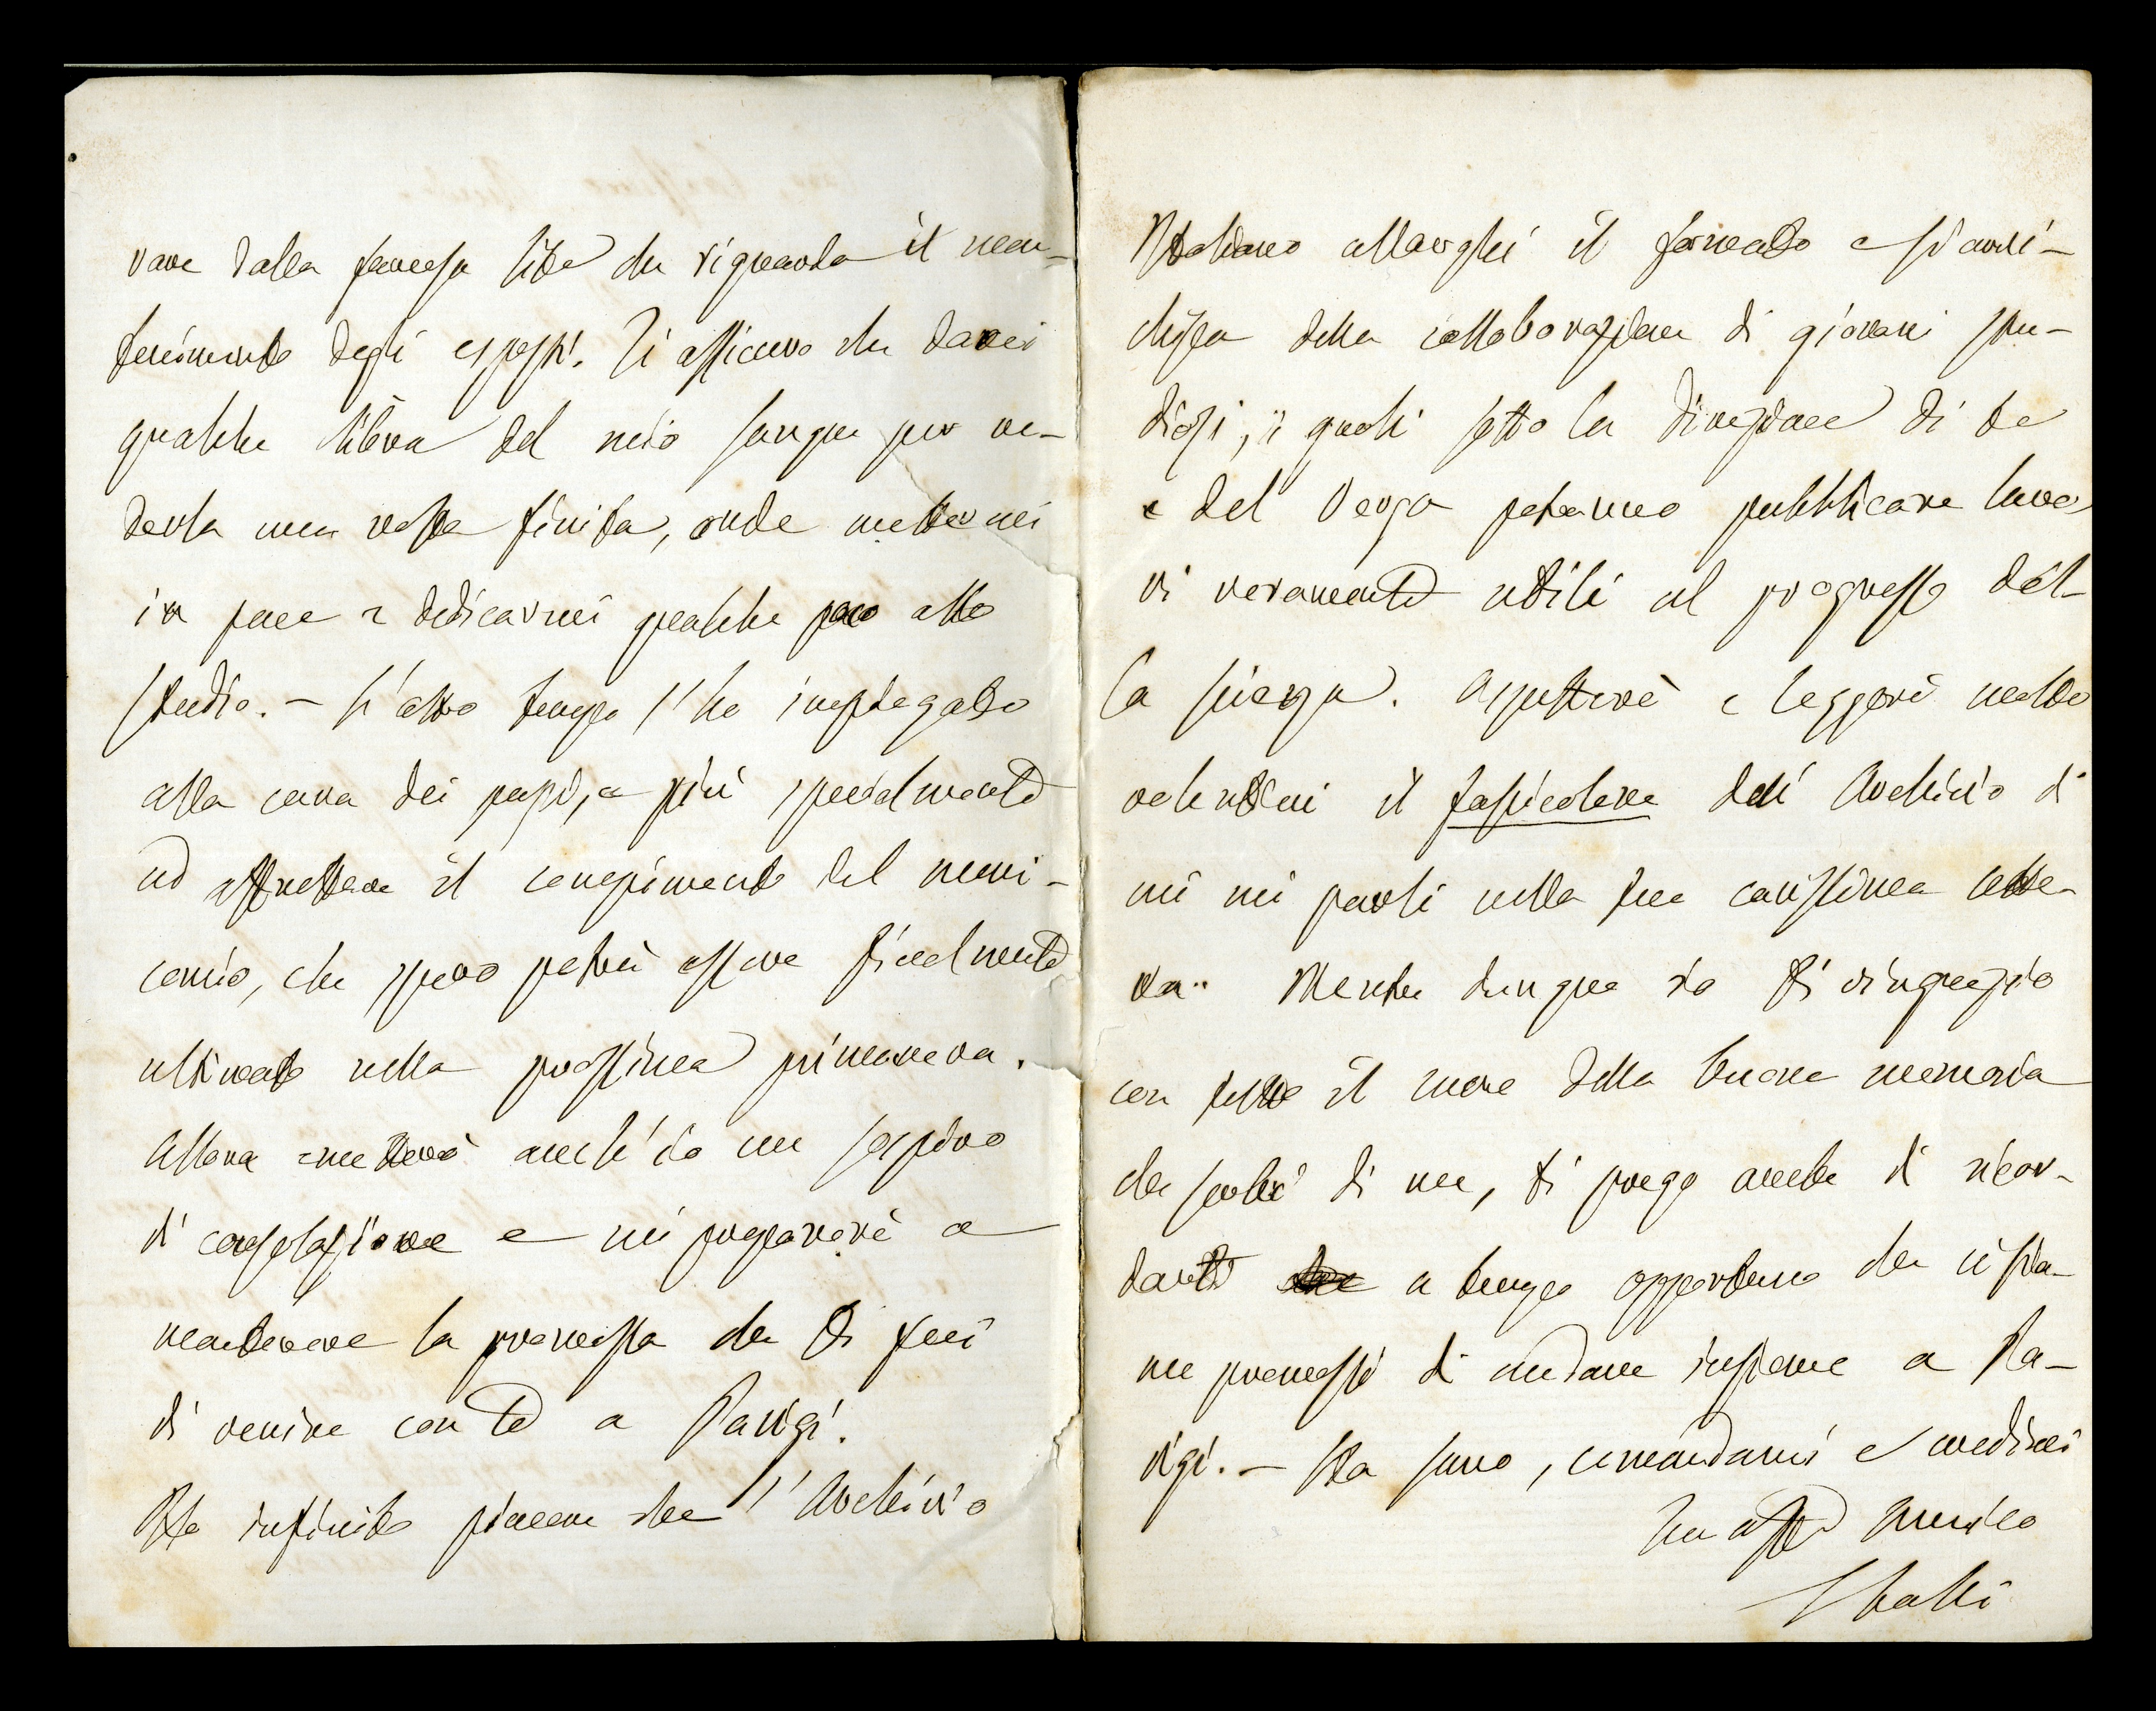 vare dalla famosa lite che riguarda il man-
tenimento degli esposti. Ti assicuro che darei
qualche libbra del mio sangue per ve-
derla una volta finita, onde mettermi
in pace e dedicarmi qualche poco allo
studio. — L'altro tempo l'ho impiegato
alla cura dei pazzi, e più specialmente
ad affrettare il compimento del mani-
comio, che spero potrà essere finalmente
ultimato nella prossima primavera.
Allora emetterò anch'io un sospiro
di consolazione e mi preparerò a
mantenere la promessa che Ti feci
di venire con Te a Parigi.
Ho infinito piacere che l'Archivio
Italiano allarghi il formato e si arri-
chisca della collaborazione di giovani stu-
diosi, i quali sotto la direzione di te
e del Verga potranno pubblicare lavo
ri veramente utili al progresso del-
la scienza. Aspetterò e leggerò molto
volentieri il fascicolone dell'Archivio di
cui mi parli nella tua carissima lette-
ra. Mentre dunque io Ti ringrazio
con tutto il cuore della buona memoria
che serbi di me, ti prego anche di ricor-
darti a tempo opportuno che ci sia-
mo promessi di andare insieme a Pa-
rigi. — Sta sano, comandami e credimi
Tuo aff. Amico